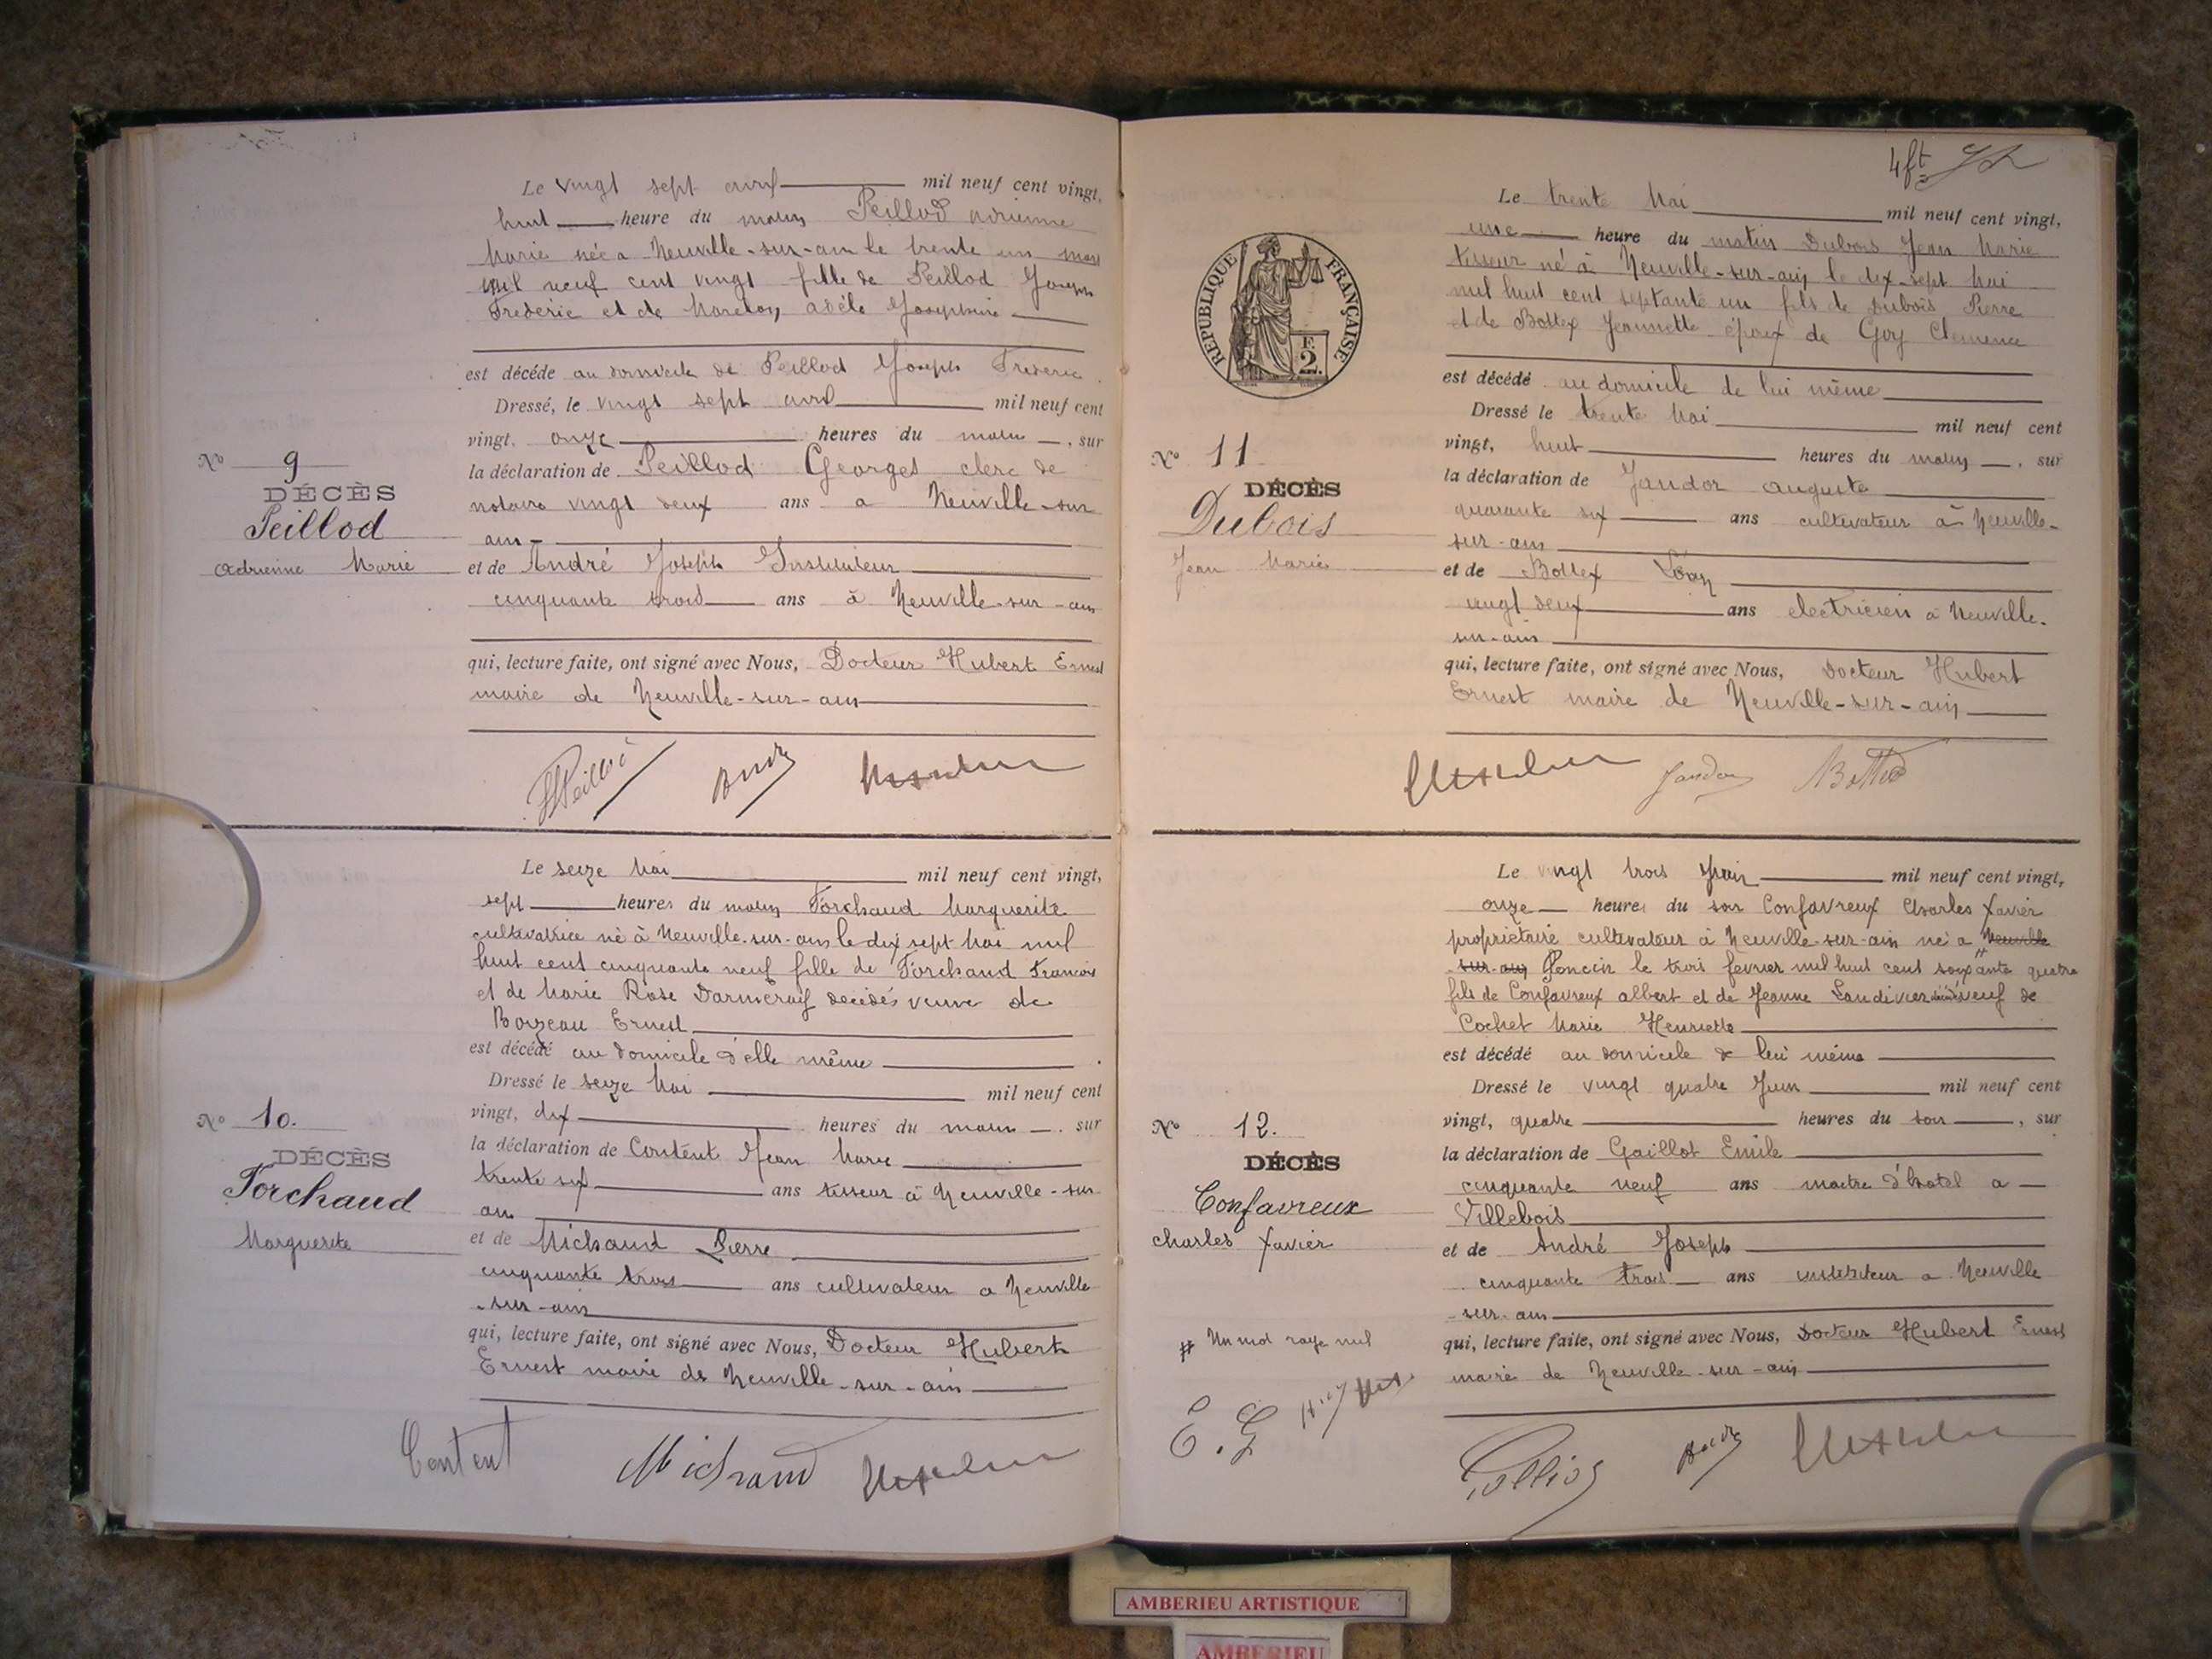 Le vingt sept avril mil neuf cent vingt,
huit heure du matin Peillod Adrienne
Marie née a Neuville-sur-ain le trente un mars
mil neuf cent vingt fille de Peillod Joseph
Frederic et de adèle Josephine
est décéde au domicile de Peillod Joseph Frederic
Dressé, le vingt sept avril mil neuf cent
vingt, onze heures du matin, sur
la déclaration de Peillod Georges clerc de
notaire vingt deux ans a Neuville-sur
ain-
et de André Joseph Instituteur
cinquante trois ans à Neuville-sur-ain
qui, lecture faite, ont signé avec Nous, Docteur Hubert Ernest
maire de Neuville-sur-ain
No 9
DÉCÈS
Peillod
Adrienne Marie
Peillod
André
Le seize Mai mil neuf cent vingt,
sept heures du matin Forchaud Marguerite
cultivatrice né à Neuville-sur-ain le dix sept Mai mil
huit cent cinquante neuf fille de Forchaud Francois
et de Marie Rose décédés veuve de
Ernest
est décédé au domicile d'elle même
Dressé le seize Mai mil neuf cent
vingt, dix heures du matin, sur
la déclaration de Content Jean Marie
trente six ans tisseur à Neuville-sur
ain
et de Michaud Pierre
cinquante trois ans cultivateur a Neuville
-sur-ain
qui, lecture faite, ont signé avec Nous, Docteur Hubert
Ernest maire de Neuville-sur-ain
No 10.
DÉCÈS
Forchaud
Marguerite
Content
Michaud
4ft
RÉPUBLIQUE FRANÇAISE
F.
2.
Le trente Mai mil neuf cent vingt,
une heure du matin Dubois Jean Marie
tisseur né à Neuville-sur-ain le dix-sept Mai
mil huit cent septante un fils de Dubois Pierre
et de Bottex Jeannette époux de Goy Clemence
est décédé au domicile de lui même
Dressé le trente Mai mil neuf cent
vingt, huit heures du matin, sur
la déclaration de Jandor auguste
quarante six ans cultivateur à Neuville-
sur-ain
et de Bottex Léon
vingt deux ans electricien a Neuville-
sur-ain
qui, lecture faite, ont signé avec Nous, Docteur Hubert
Ernest maire de Neuville-sur-ain
No 11
DÉCÈS
Dubois
Jean Marie
Le vingt trois Juin mil neuf cent vingt,
onze heures du soir Confavreux Charles Xavier
propriétaire cultivateur à Neuville-sur-ain né a Neuville
-sur-ain Poncin le trois fevrier mil huit cent soixante quatre
fils de Confavreux albert et de Jeanne veuf de
Cochet Marie Henriette
est décédé au domicile de lui même
Dressé le vingt quatre Juin mil neuf cent
vingt, quatre heures du soir, sur
la déclaration de Gaillot Emile
cinquante neuf ans maitre d'hotel a
Villebois
et de André Joseph
cinquante trois ans instituteur a Neuville
-sur-ain
qui, lecture faite, ont signé avec Nous, Docteur Hubert Ernest
maire de Neuville-sur-ain
No 12.
DÉCÈS
Confavreux
charles Xavier
# Un mot rayé nul
E. G
André
AMBERIEU ARTISTIQUE
AMBERIEU